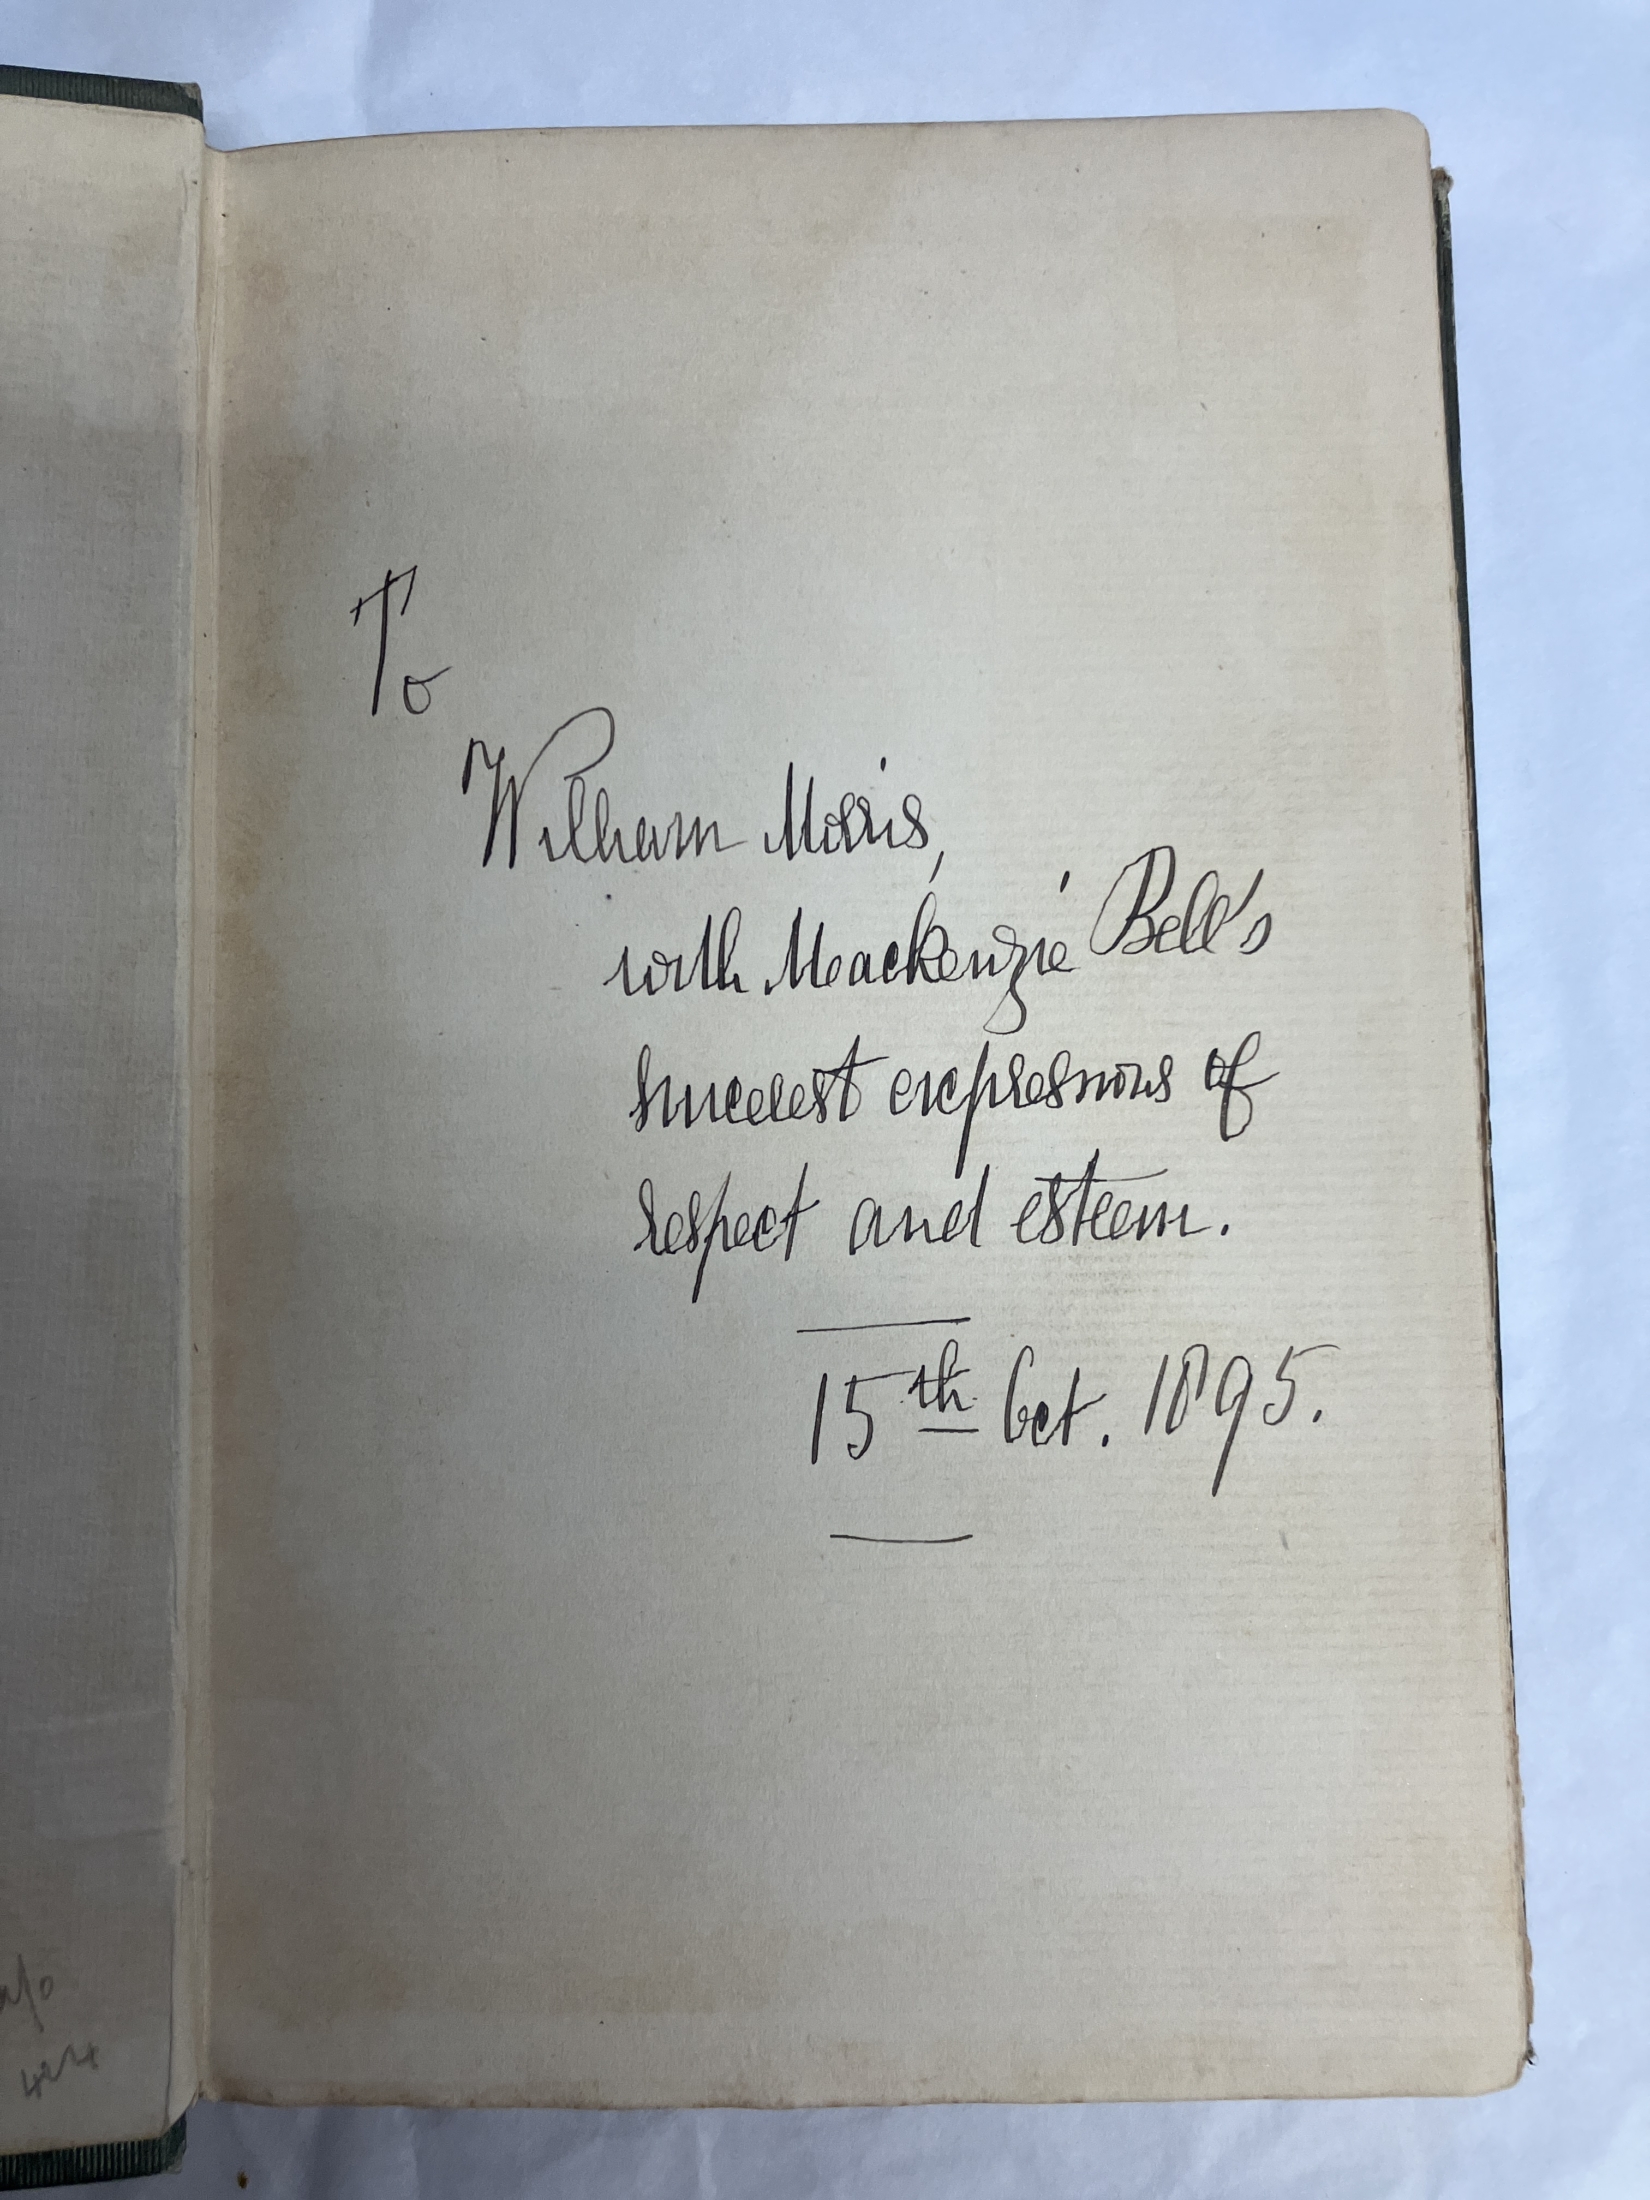 To
William Morris,
with Mackenzie Bell's
sincerest expressions of
respect and esteem.
15th Oct. 1895.